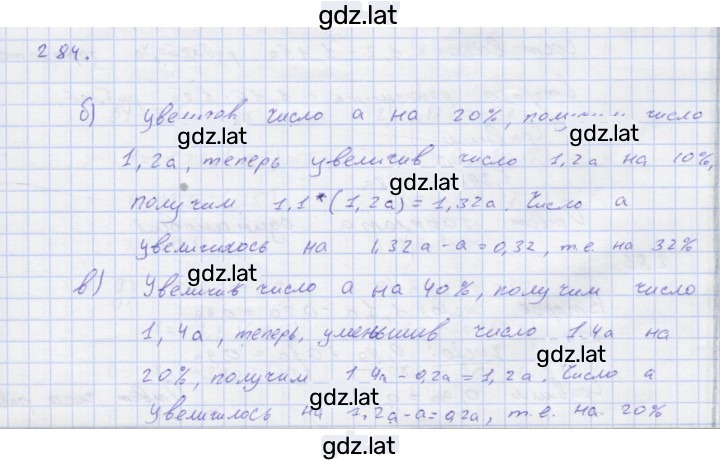 gdz.lat
284.
б) увеличив число а на 20%, получим число
gdz.lat gdz.lat
1,2а, теперь увеличив число 1,2а на 10%,
gdz.lat
получим 1,1*(1,2а)=1,32а. Число а
увеличилось на 1,32а-а=0,32, т.е. на 32%
gdz.lat
в) Увеличив число а на 40%, получим число
1,4а, теперь, уменьшив число 1.4а на
gdz.lat
20%, получим 1.4а-0,2а=1,2а. Число а
gdz.lat
увеличилось на 1,2а-а=0,2а, т.е. на 20%
gdz.lat